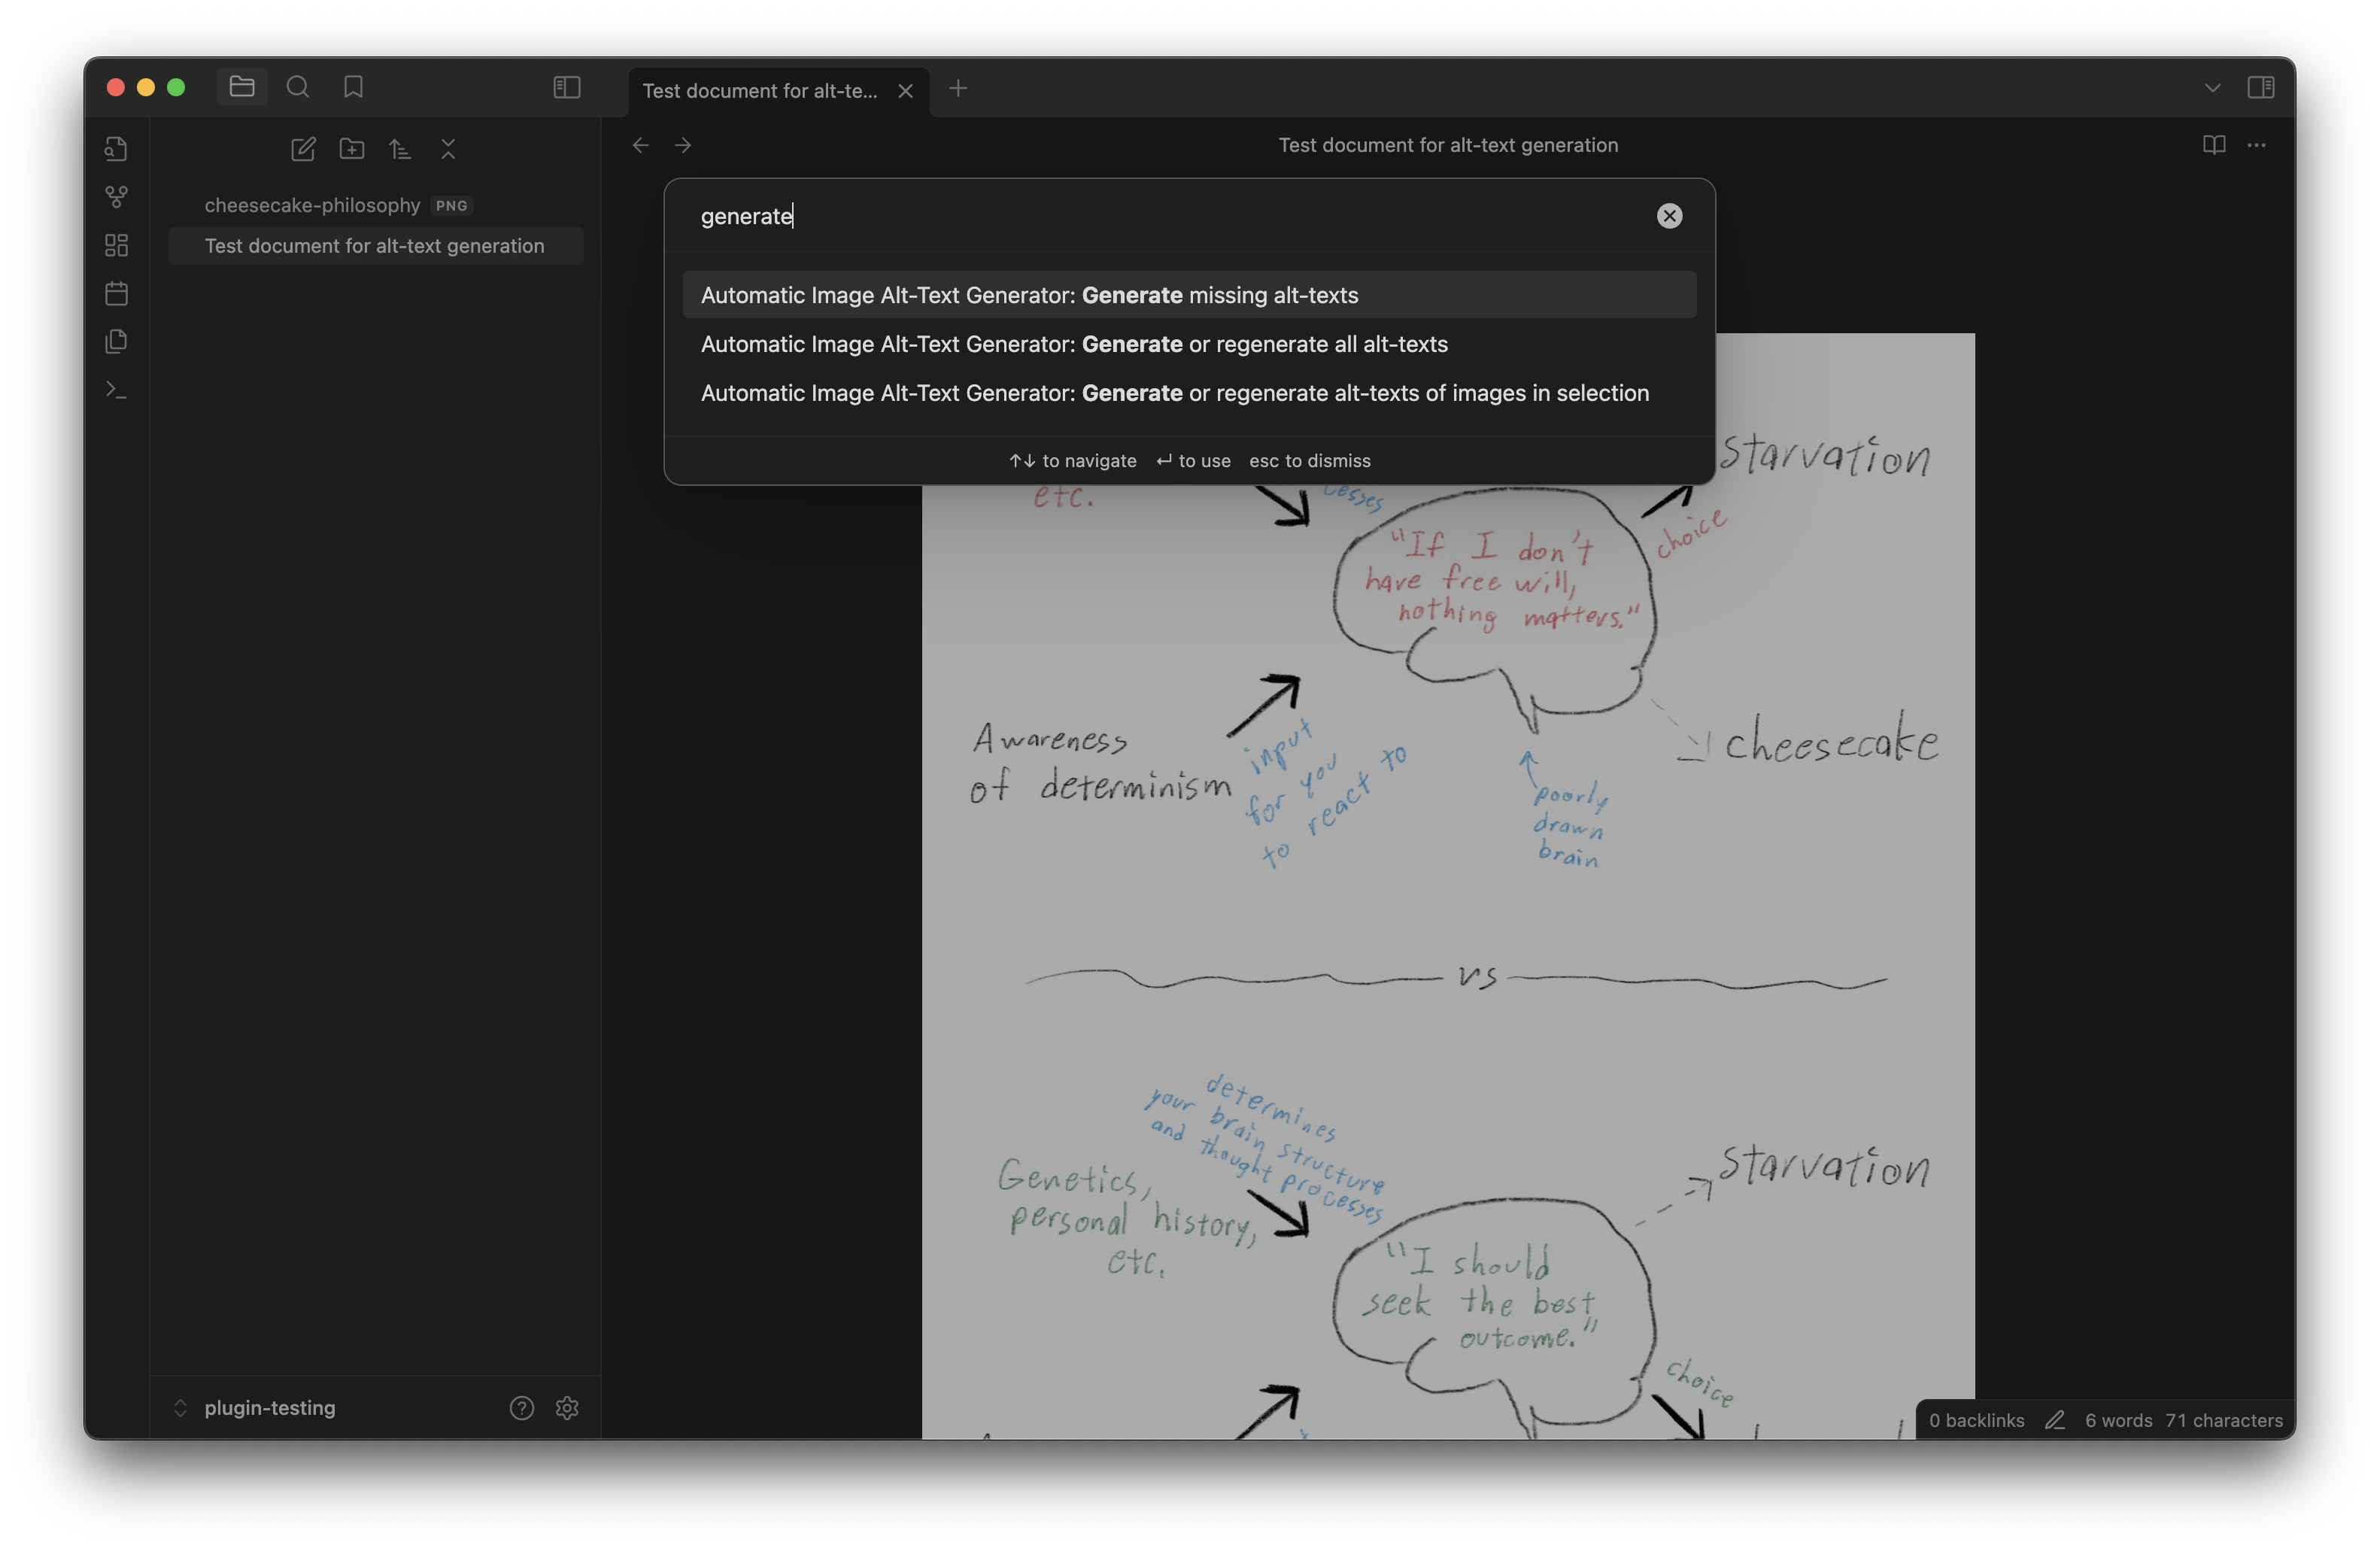 Test document for alt-te...
Test document for alt-text generation
cheesecake-philosophy PNG
Test document for alt-text generation
generate
Automatic Image Alt-Text Generator: Generate missing alt-texts
Automatic Image Alt-Text Generator: Generate or regenerate all alt-texts
Automatic Image Alt-Text Generator: Generate or regenerate alt-texts of images in selection
↑↓ to navigate ↵ to use esc to dismiss
starvation
etc.
cesses
choice
"If I don't
have free will,
nothing matters."
Awareness
of determinism
input
for you
to react to
cheesecake
poorly
drawn
brain
vs
determines
your brain structure
and thought processes
Genetics,
personal history,
etc.
starvation
"I should
seek the best
outcome."
choice
plugin-testing
0 backlinks 6 words 71 characters